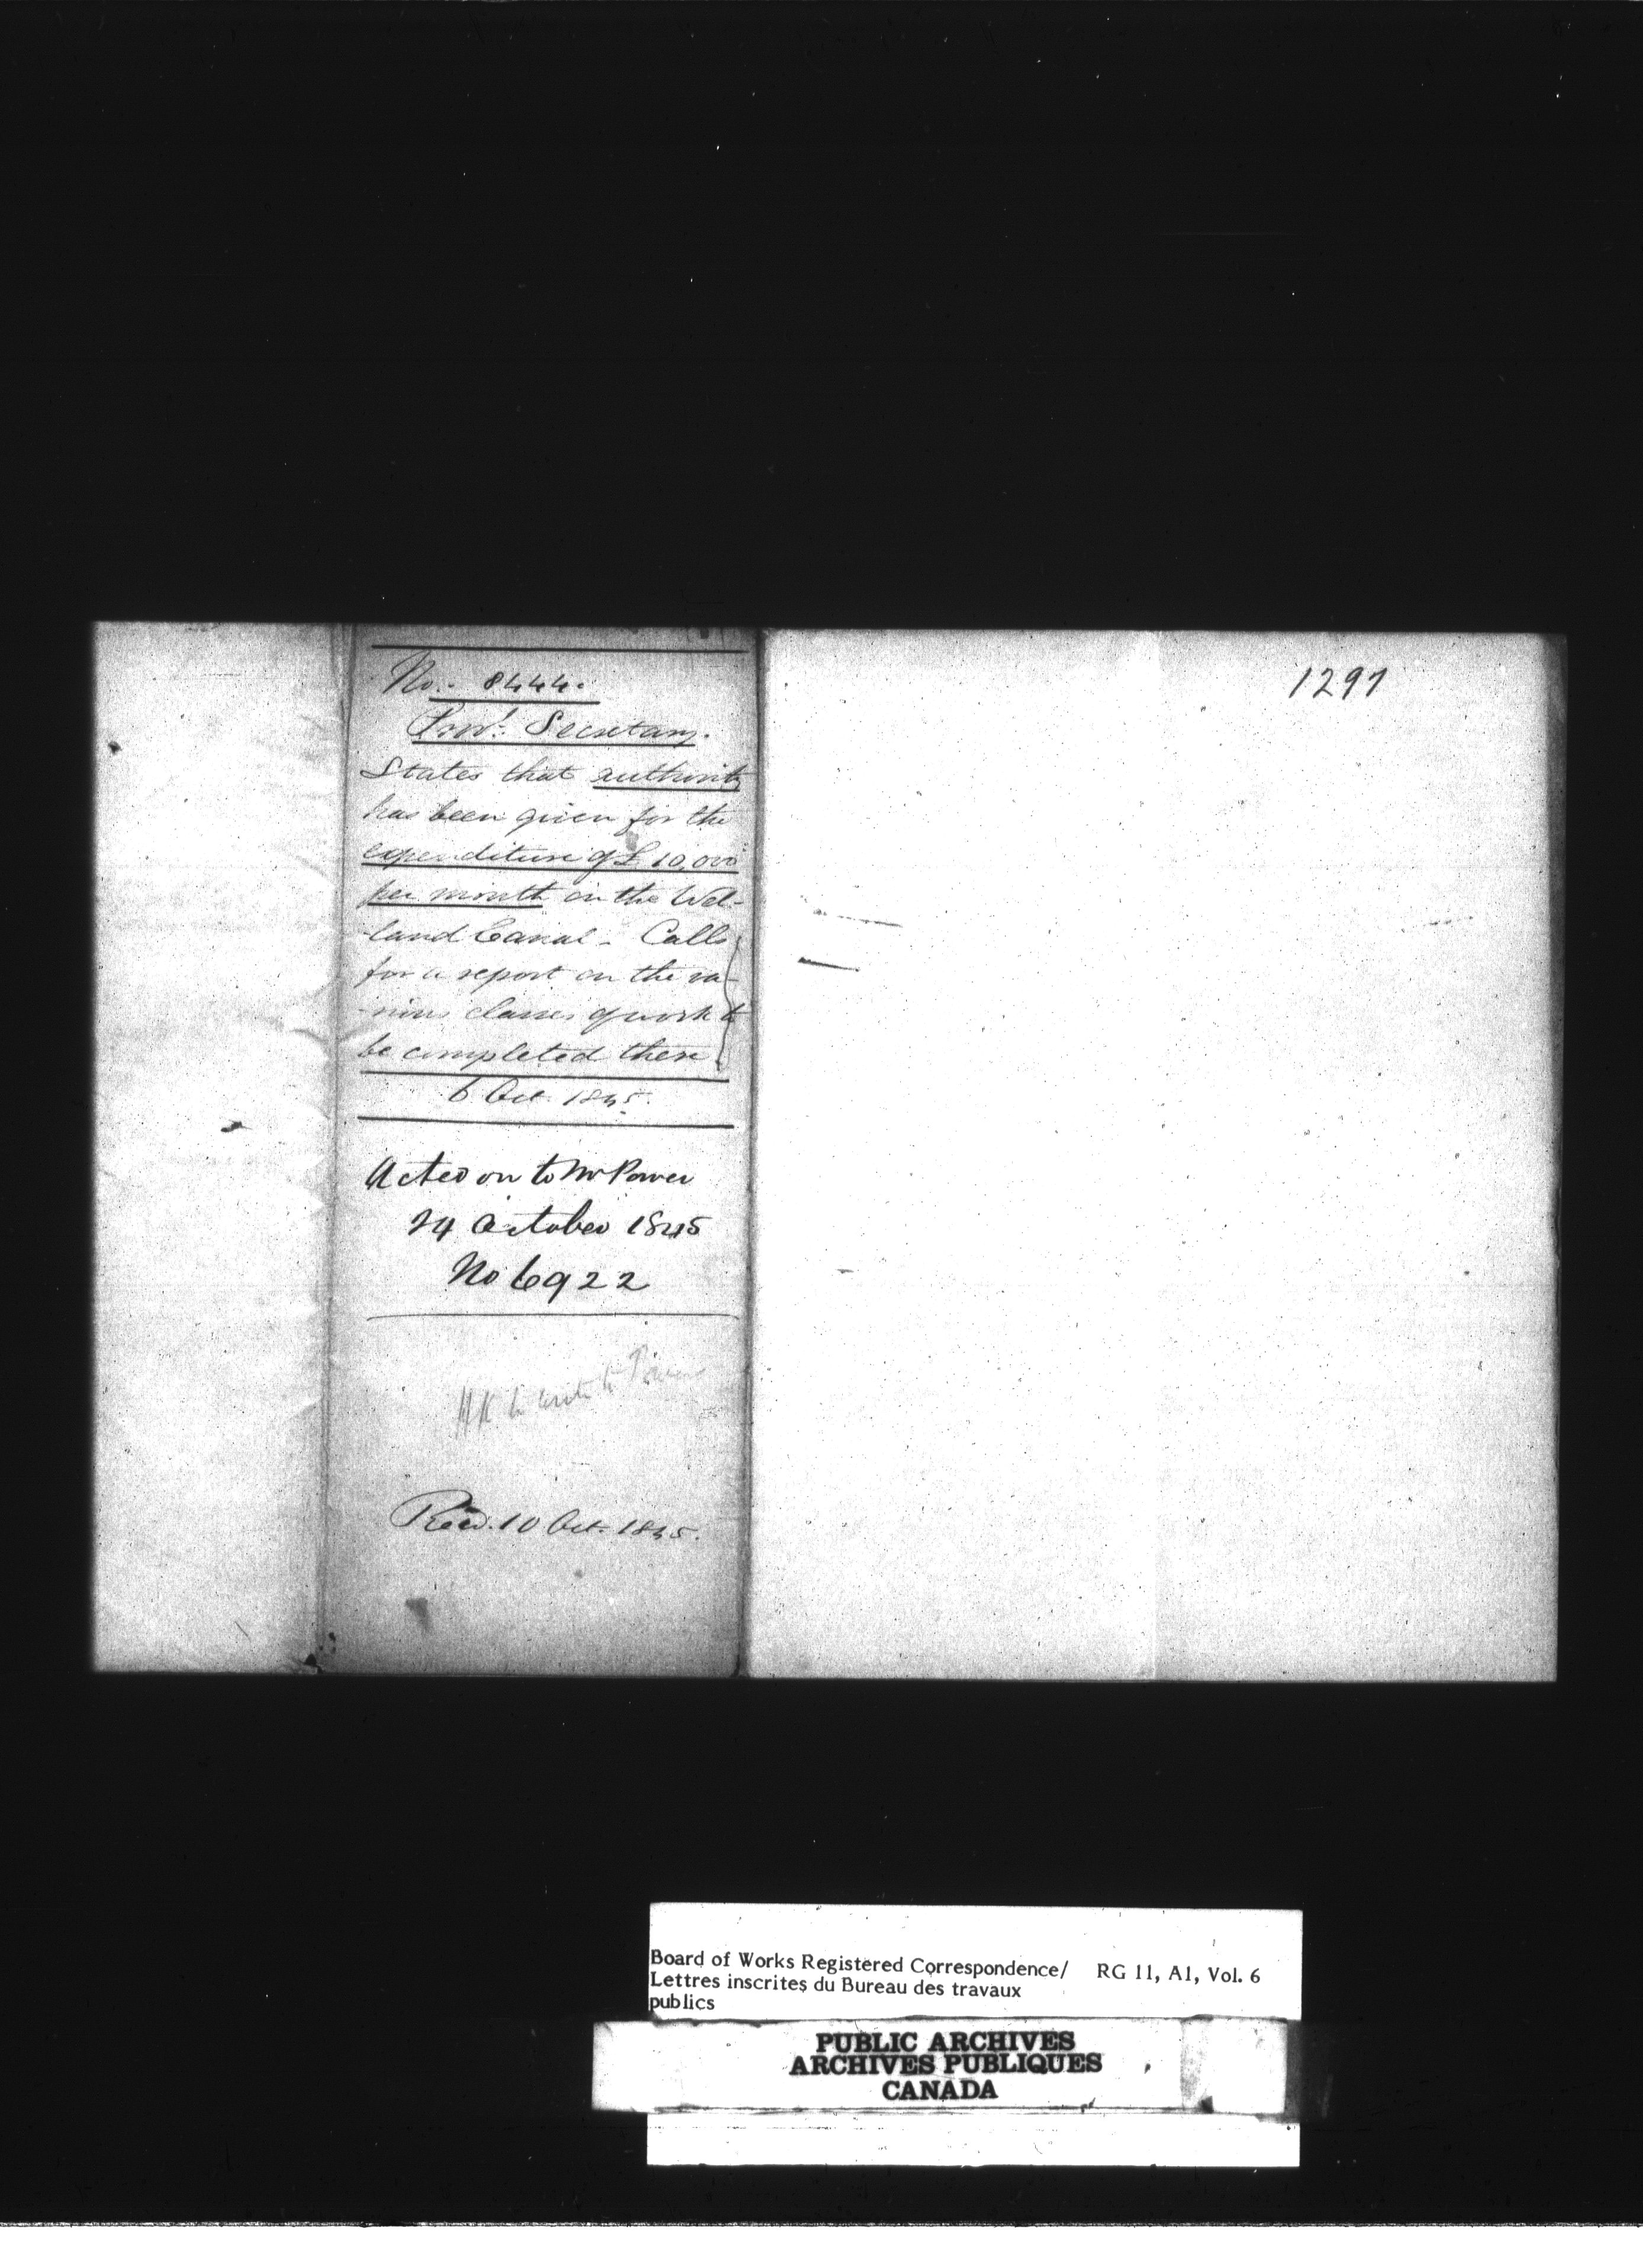 No. 8444.
Provl. Secretary.
States that authority
has been given for the
expenditure of £10,000
per month on the Wel-
-land Canal - Calls
for a report on the va-
-rious classes of work to
be completed there
6 Oct. 1845.
Acted on to Mr Power
24 October 1845
No 6922
to write to Power
Recd. 10 Oct. 1845.
1297
Board of Works Registered Correspondence/ RG 11, A1, Vol. 6
Lettres inscrites du Bureau des travaux
publics
PUBLIC ARCHIVES
ARCHIVES PUBLIQUES
CANADA